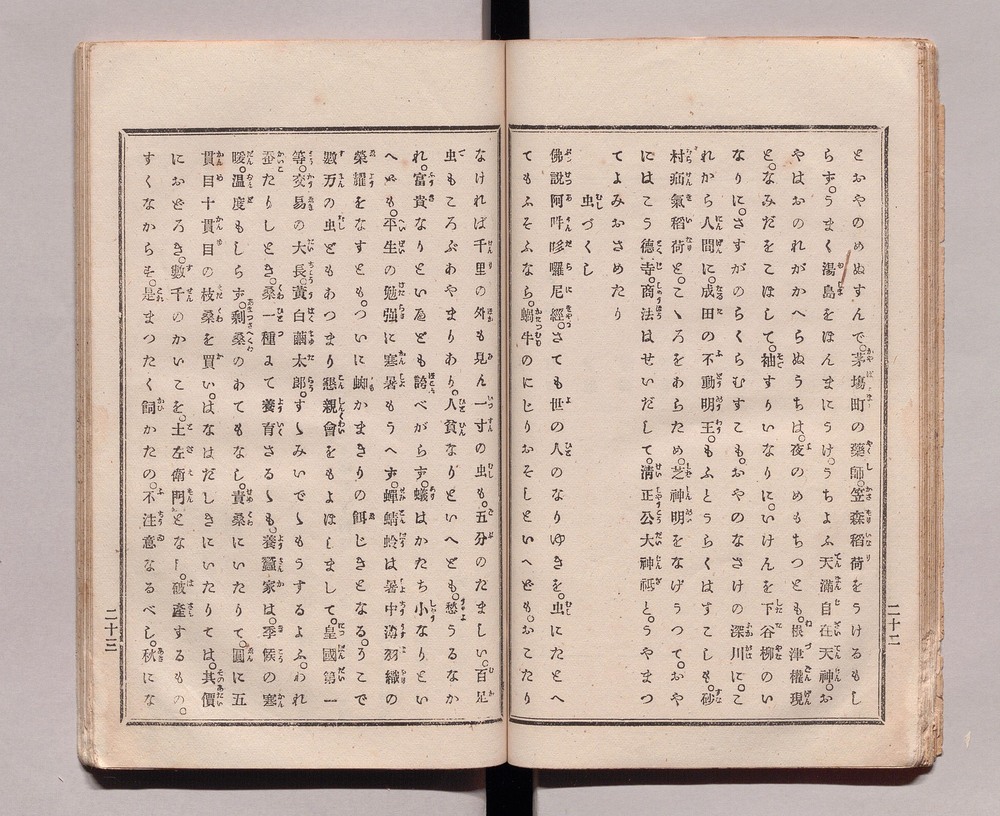 とおやのめぬすんで。茅塲町の藥師。笠森稻荷をうけるもし
らず。うまく湯島をほんまにうけ。うちよふ天滿自在天神。お
やはおのれがかへらぬうちは。夜のめもちつとも。根津權現
と。なみだをこぼして。袖すりいなりに。いけんを下谷柳のい
なりに。さすがのらくらむすこも。おやのなさけの深川に。こ
れから人間に。成田の不動明王。もふとうらくはすこしも。砂
村疝氣稻荷と。こゝろをあらため。芝神明をなげうつて。おや
にはこう德寺。商法はせいだして。淸正公大神祇と。うやまつ
てよみおさめたり
虫づくし
佛說阿吽吵囉尼經。さても世の人のなりゆきを。虫にたとへ
てもふそふなら。蝸牛のにじりおそしといへども。おこたり
二十二
なければ千里の外も見ん一寸の虫も。五分のたましい。百足
虫もころぶあやまりあり。人貧なりといへども。愁うるなか
れ。富貴なりといへども誇べからず。蟻はかたち小なりとい
へども。平生の勉强に寒暑もうへず。蟬蜻蛉は暑中海羽織の
榮耀をなすとも。ついに蜘かまきりの餌じきとなる。うこで
數万の虫どもあつまり懇親會をもよほしまして。皇國第一
等。交易の大長。黃白繭太郞。すゝみいでゝもうするよふ。われ
蚕たりしとき。桑一種にて養育さるゝも。養蠶家は。季候の寒
暖。溫度もしらず。剩桑のあてもなし。責桑にいたりて。圓に五
貫目十貫目の枝桑を買い。はなはだしきにいたりては。其價
におどろき。數千のかいこを。土左衛門となし。破產するもの。
すくなからそ。是まつたく飼かたの。不注意なるべし。秋にな
二十三